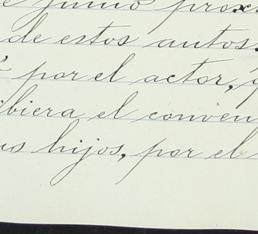 de junio prox
de estos autos.
por el actor,
ibiera el conven
us hijos, por el